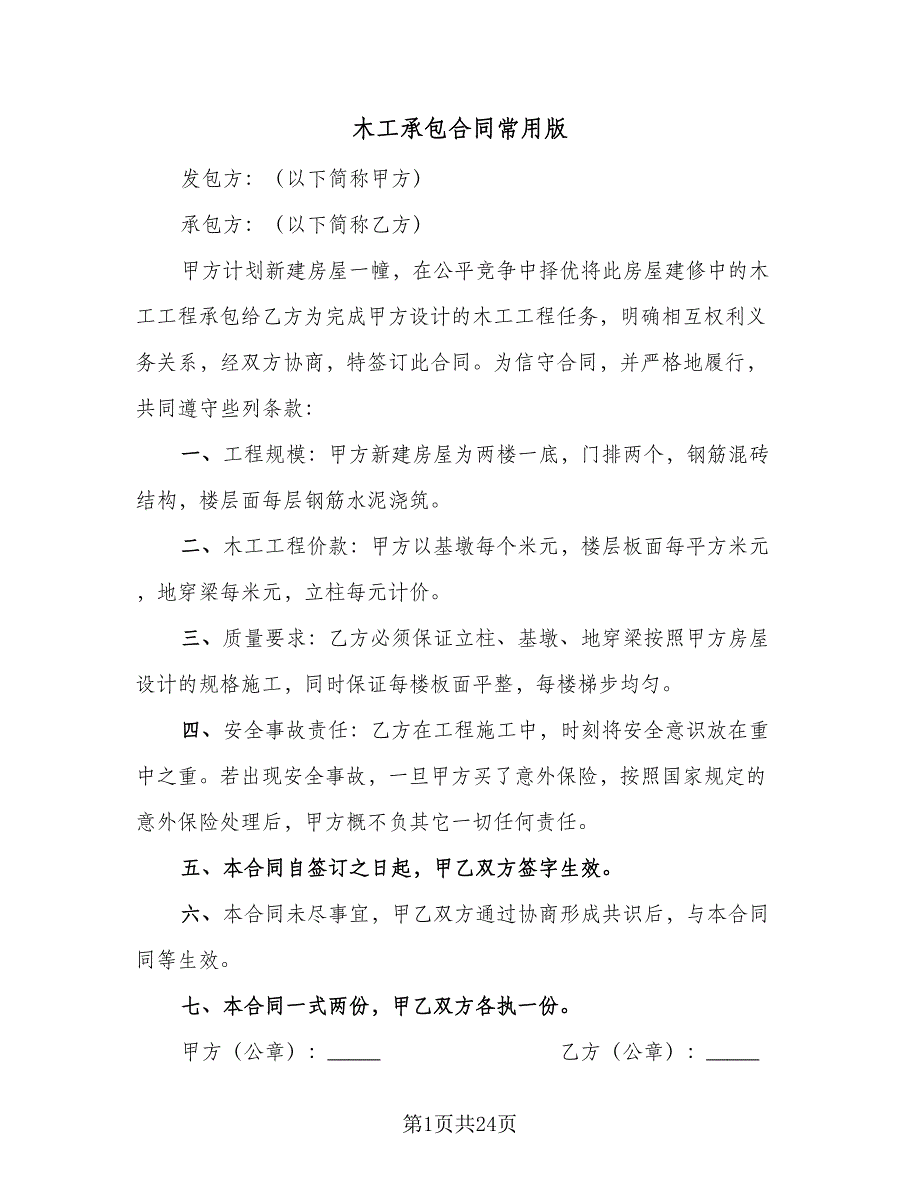 木工承包合同常用版
发包方：（以下简称甲方）
承包方：（以下简称乙方）
甲方计划新建房屋一幢，在公平竞争中择优将此房屋建修中的木
工工程承包给乙方为完成甲方设计的木工工程任务，明确相互权利义
务关系，经双方协商，特签订此合同。为信守合同，并严格地履行，
共同遵守些列条款：
一、工程规模：甲方新建房屋为两楼一底，门排两个，钢筋混砖
结构，楼层面每层钢筋水泥浇筑。
二、木工工程价款：甲方以基墩每个米元，楼层板面每平方米元
，地穿梁每米元，立柱每元计价。
三、质量要求：乙方必须保证立柱、基墩、地穿梁按照甲方房屋
设计的规格施工，同时保证每楼板面平整，每楼梯步均匀。
四、安全事故责任：乙方在工程施工中，时刻将安全意识放在重
中之重。若出现安全事故，一旦甲方买了意外保险，按照国家规定的
意外保险处理后，甲方概不负其它一切任何责任。
五、本合同自签订之日起，甲乙双方签字生效。
六、本合同未尽事宜，甲乙双方通过协商形成共识后，与本合同
同等生效。
七、本合同一式两份，甲乙双方各执一份。
甲方（公章）：_____ 乙方（公章）：_____
第1页共24页